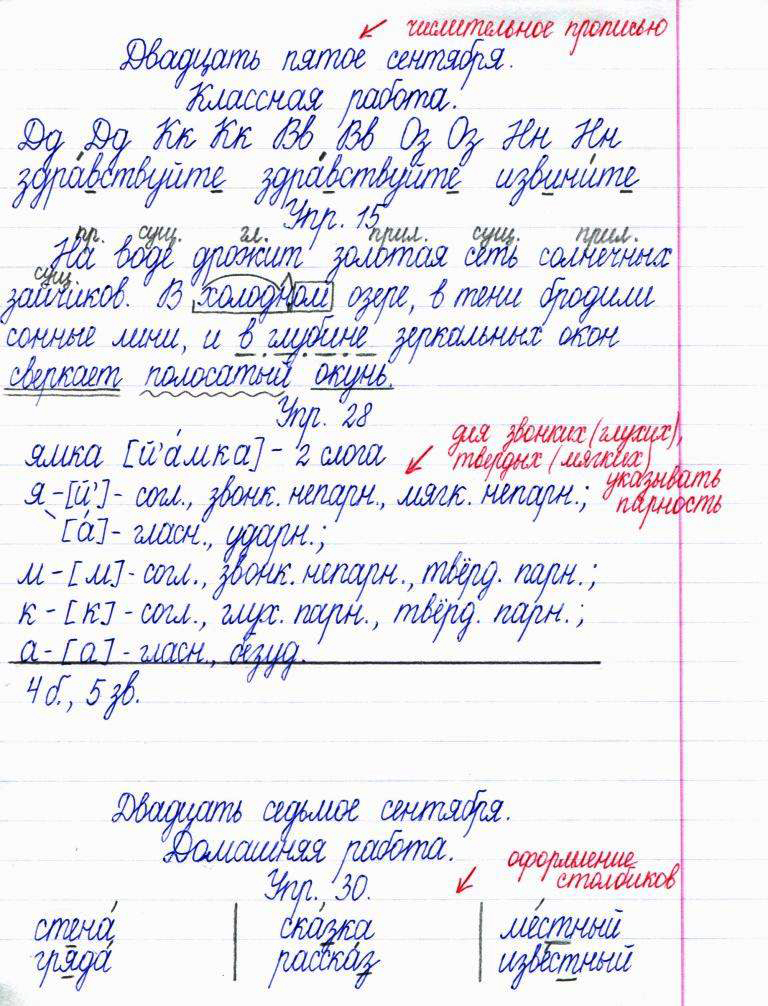 числительное прописью
Двадцать пятое сентября.
Классная работа.
Дд Дд Кк Кк Вв Вв Оз Оз Нн Нн
здра́вствуйте здра́вствуйте извини́те
Упр. 15
пр. сущ. гл. прил. сущ. прил.
На воде дрожит золотая сеть солнечных
сущ.
зайчиков. В холодном озере, в тени бродили
сонные лини, и в глубине зеркальных окон
сверкает полосатый окунь.
Упр. 28
для звонких (глухих),
твердых (мягких)
указывать
парность
ямка [й'а́мка] - 2 слога
я - [й'] - согл., звонк. непарн., мягк. непарн.;
[а́] - гласн., ударн.;
м - [м] - согл., звонк. непарн., твёрд. парн.;
к - [к] - согл., глух. парн., твёрд. парн.;
а - [а] - гласн., безуд.
4 б., 5 зв.
Двадцать седьмое сентября.
Домашняя работа.
Упр. 30.
оформление
столбиков
стена́ ска́зка ме́стный
гряда́ расска́з изве́стный